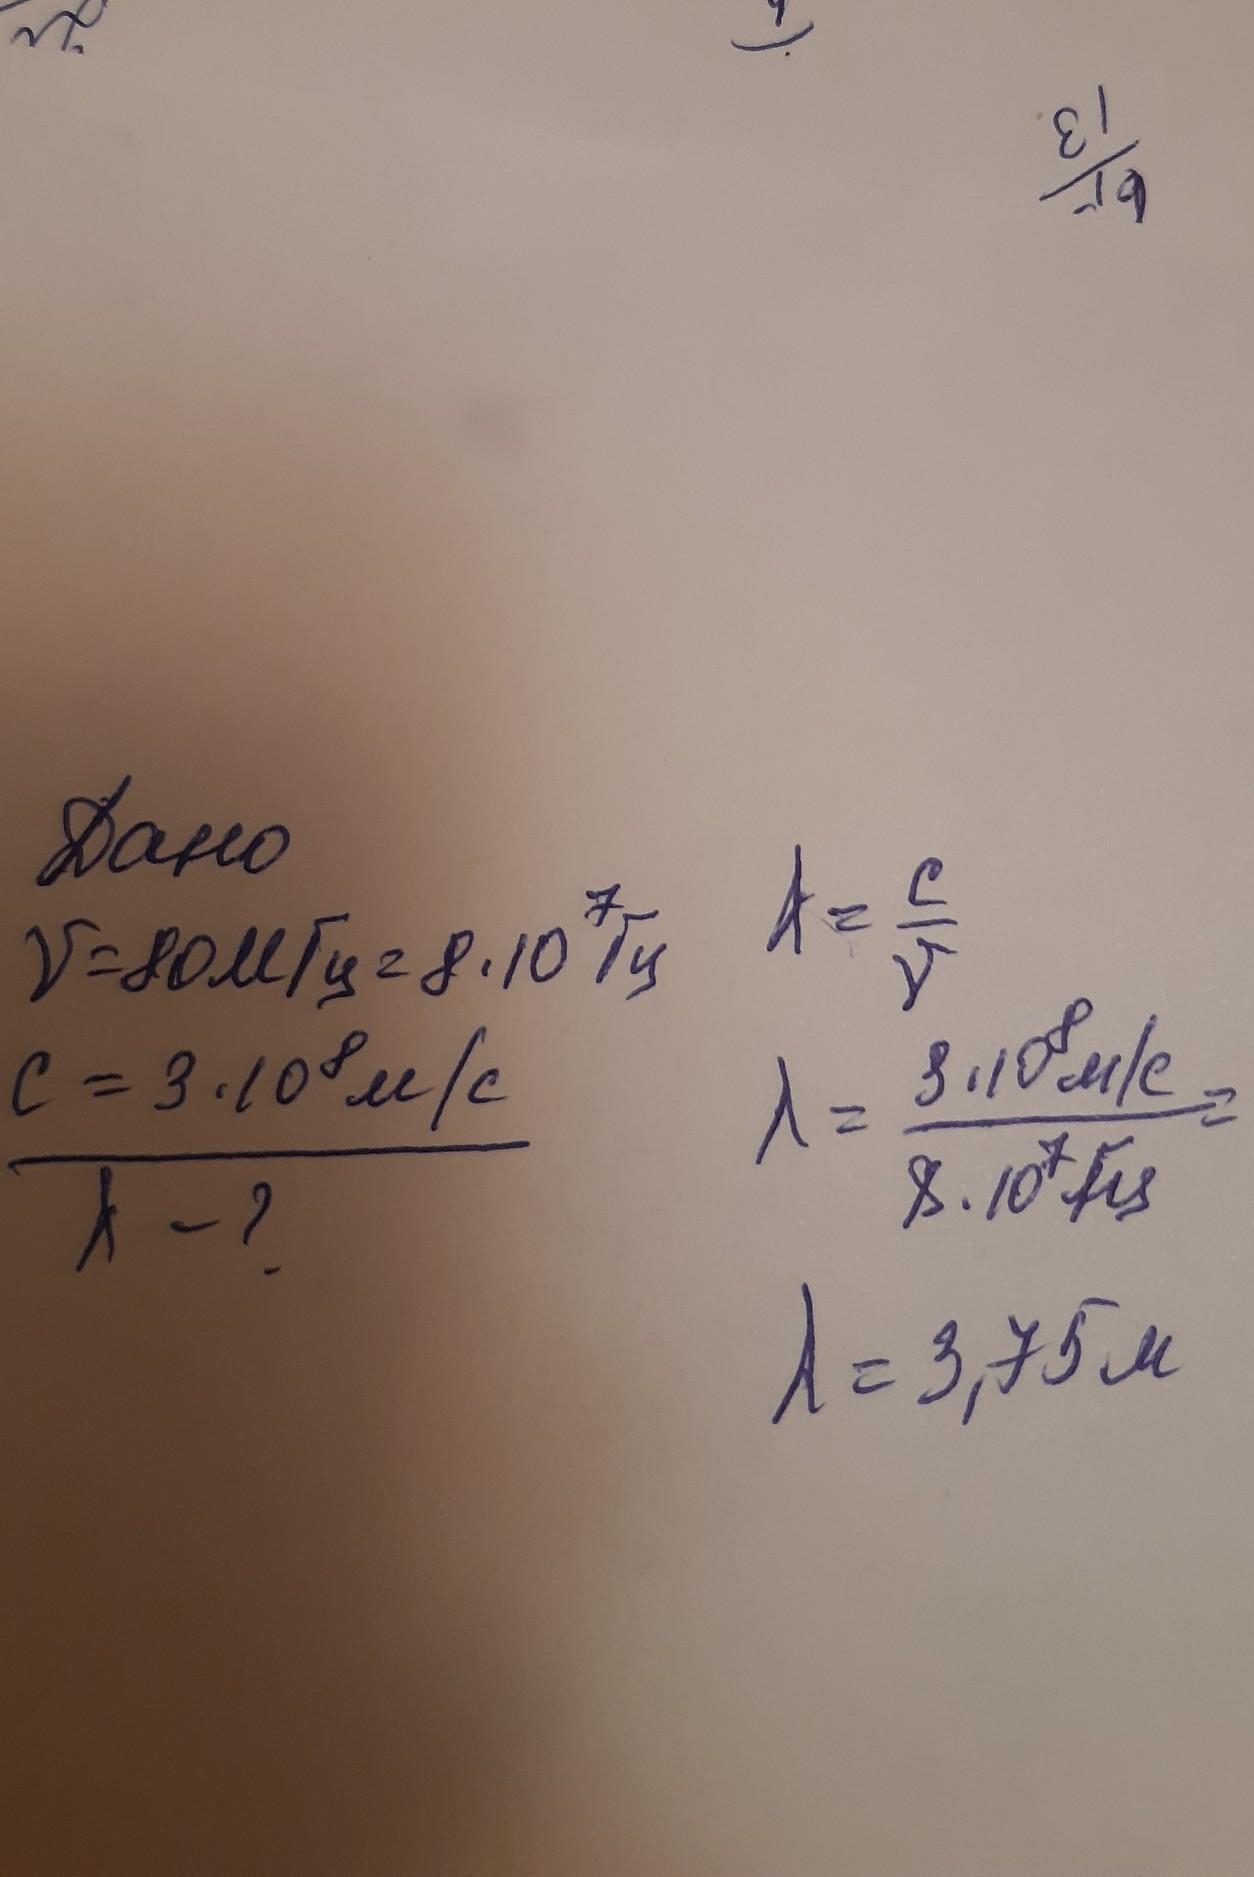 Дано
ν=80МГц=8·10⁷Гц
c=3·10⁸м/с
λ-?
λ=c/ν
λ=3·10⁸м/с / 8·10⁷Гц=
λ=3,75м